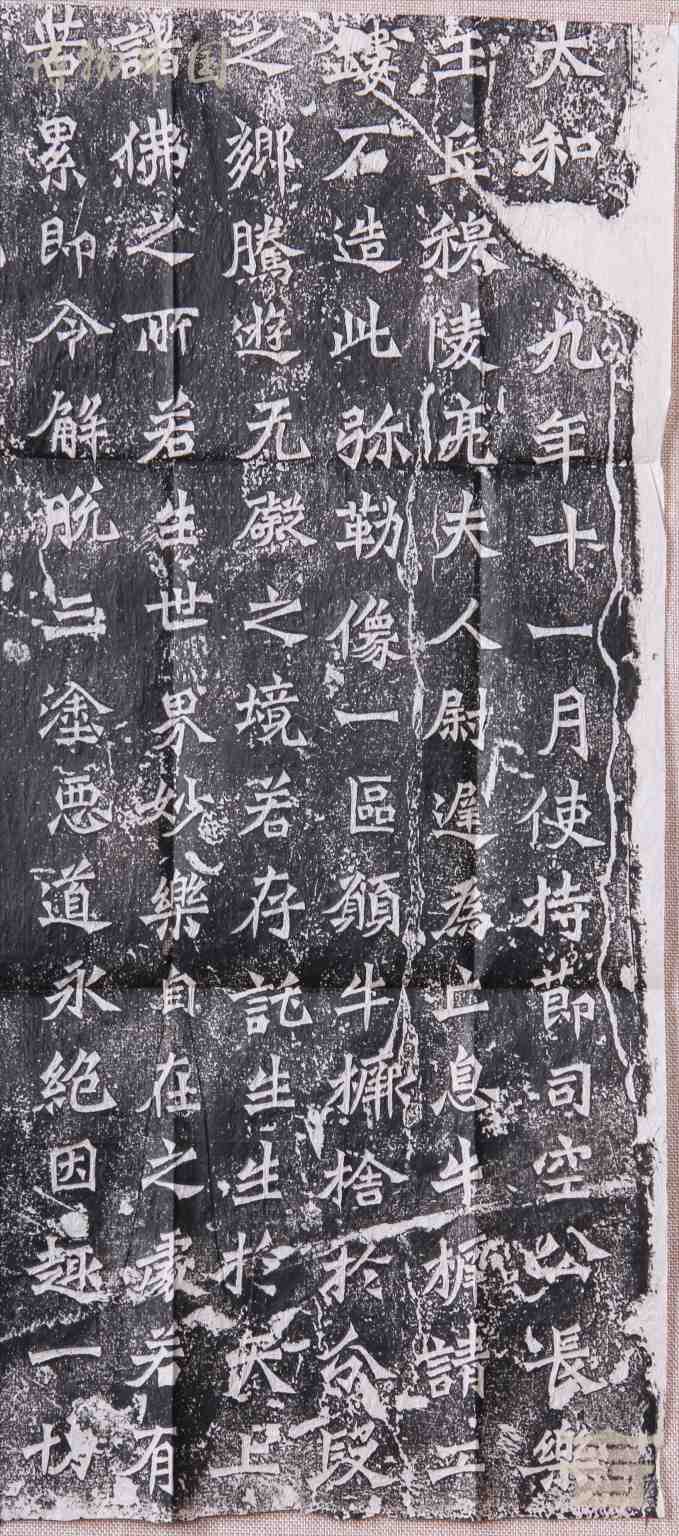 太和九年十一月使持節司空公長樂
王丘穆陵亮夫人尉遲為亡息牛橛請工
鏤石造此弥勒像一區願牛橛捨於分段
之鄉騰遊无礙之境若存託生生於天上
諸佛之所若生世界妙樂自在之處若有
苦累即令解脫三塗惡道永絕因趣一切